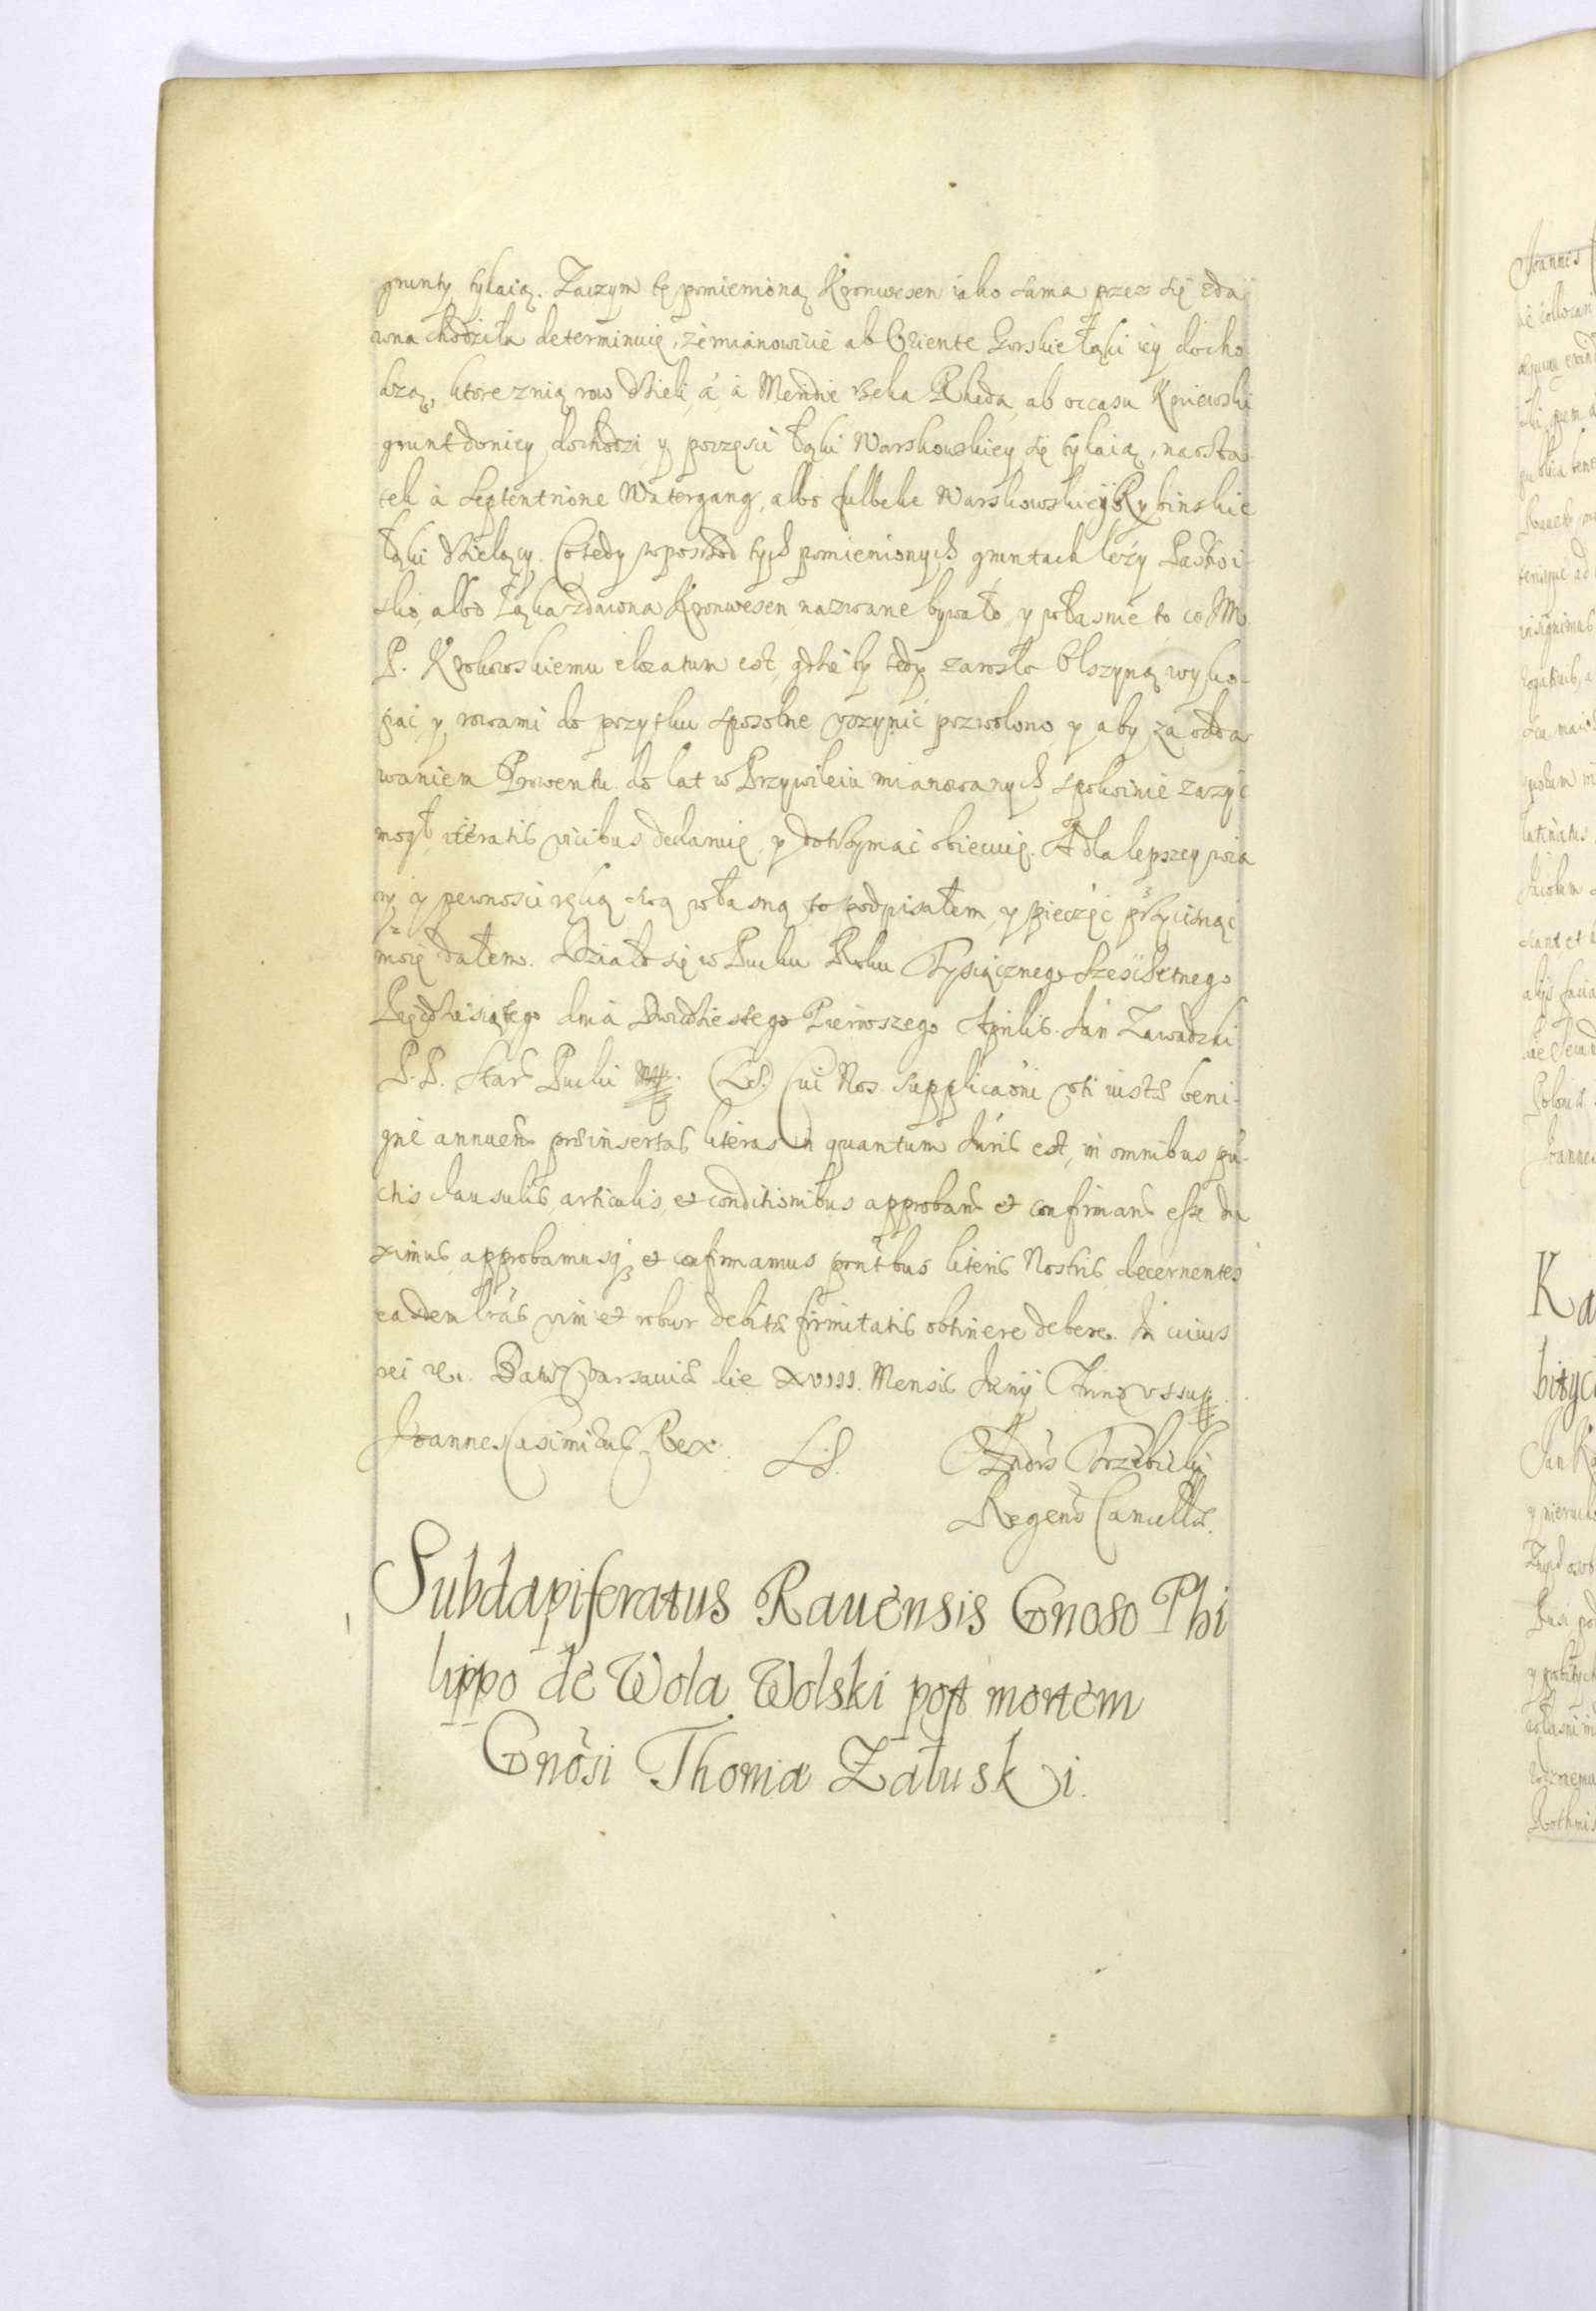 grunty tykaią. Zaczym tę pomienioną Kronwesen iako sama przez się zda
wna chodziła determinuię, że mianowicie ab Oriente Gorskie łąki iey docho
dzą, ktore znią row dzieli, á à Meridie rzeka Rheda, ab occasu Kniewski
grunt doniey dochodzi y poczęsci łąki Warskowskiey się tykaią, naosta
tek à Septentrione Watergang, albo fulbeke Warskowskiey y Rybinskie
łąki dzielący. Co tedy wposrzod tych pomienionych gruntach leży Pastwi-
sko, albo Łąka zdawna Kronwesen nazwane bywało, y własnie to co M.
P. Krokowskiemu elocatum est, gdzie by tedy zarosło Olszyną wyko-
pać y rowami do pożytku sposobne vczynić pozwolono y aby za odda
waniem Prowentu do lat w Przywileiu mianowanych spokoinie zażyć
mogł iteratis vicibus declaruię, y dotrzymać obiecuię. A dla lepszey wia
ry y pewnosci ręką swą własną to podpisałem, y pieczęć przycisnąć
moię dałem. Działo się w Pucku Roku Tysiącznego Sześćsetnego
Pięćdziesiątego dnia Dwudziestego Pierwszego Aprilis. Jan Zawadzki
P. P. Star Pucki mp. (L.S.) Cui Nos supplicaoni vti iustæ beni-
gnè annuen præinsertas literas in quantum Iuris est, in omnibus pū-
ctis clausulis, articulis, et conditionibus approband et confirmand esse du
ximus approbamusq3 et confirmamus pntibus literis Nostris decernentes
easdem lras vim et robur debitæ firmitatis obtinere debere. In cuius
rei &c. Dat Varsauiæ die XVIII. Mensis Junij Anno vt supra
Joannes Casimirus Rex. L.S. Andrs Trzebicki
Regens Cancellæ.
Subdapiferatus Rauensis Gnoso Phi
lippo de Wola Wolski post mortem
Gnosi Thomæ Załuski.